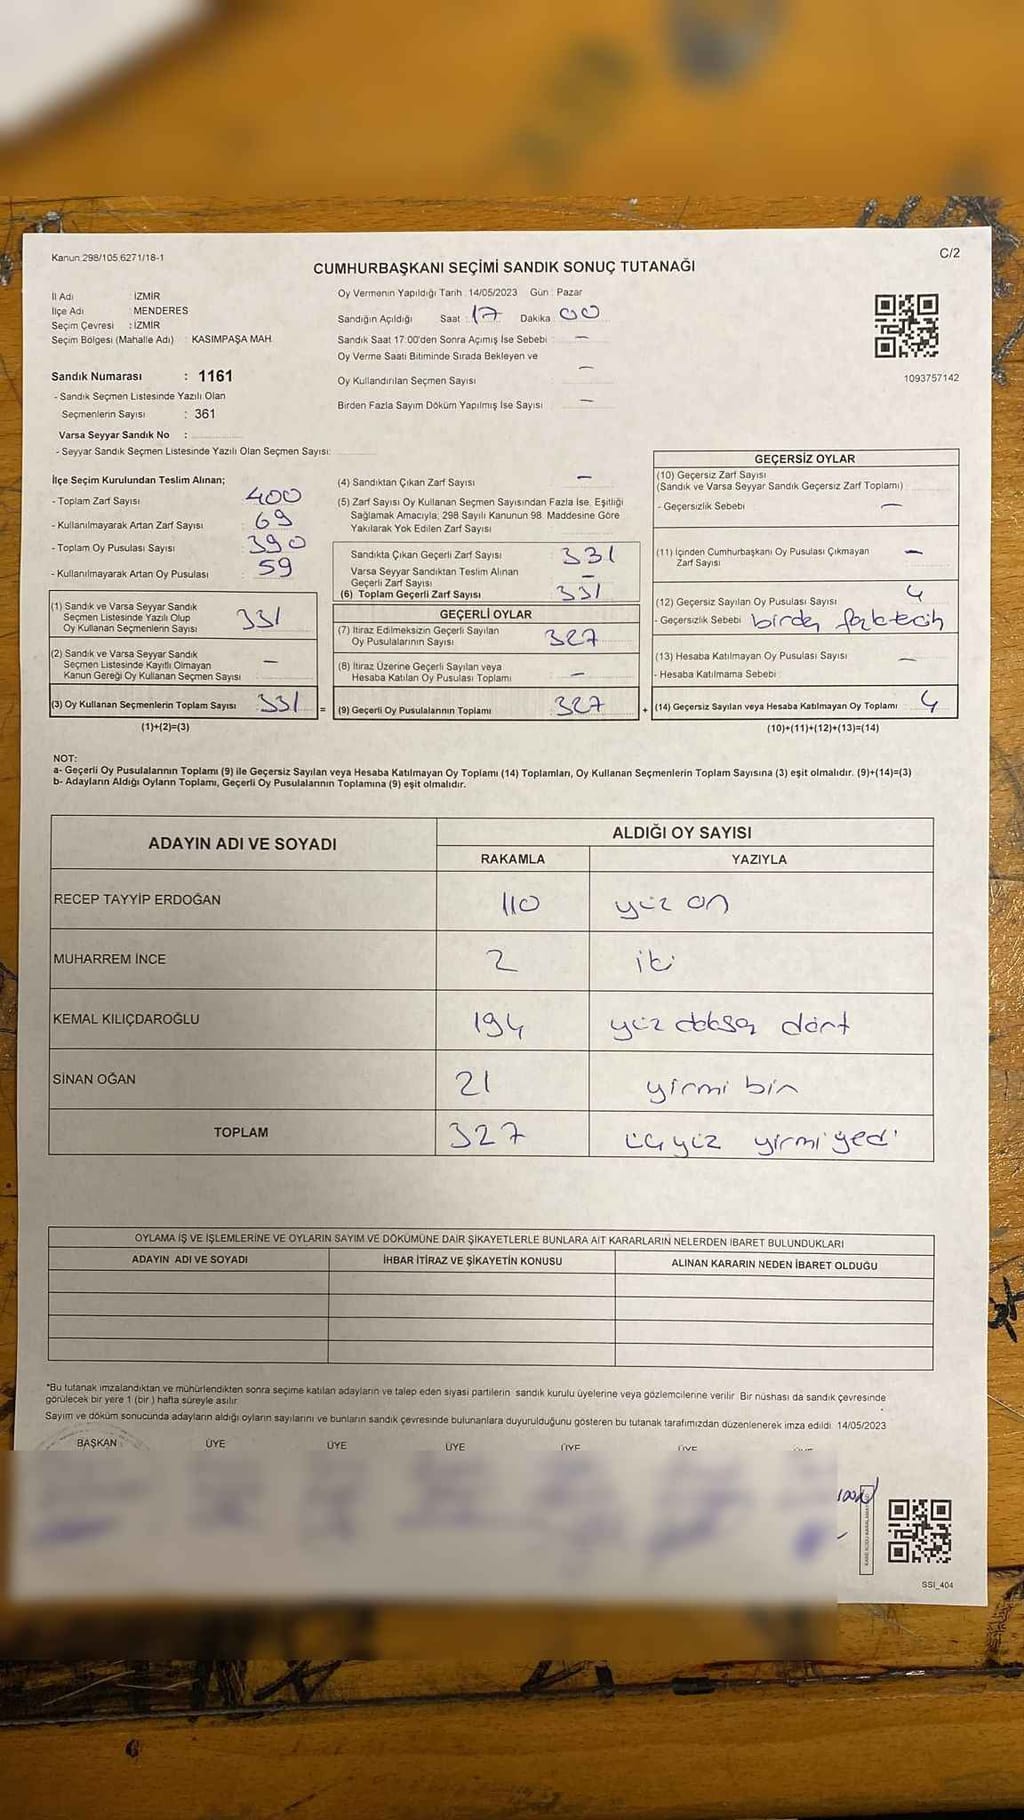 Kanun.298/105.6271/18-1
C/2
CUMHURBAŞKANI SEÇİMİ SANDIK SONUÇ TUTANAĞI
İl Adı : İZMİR
İlçe Adı : MENDERES
Seçim Çevresi : İZMİR
Seçim Bölgesi (Mahalle Adı) : KASIMPAŞA MAH.
Sandık Numarası : 1161
- Sandık Seçmen Listesinde Yazılı Olan
Seçmenlerin Sayısı : 361
Varsa Seyyar Sandık No :
- Seyyar Sandık Seçmen Listesinde Yazılı Olan Seçmen Sayısı:
Oy Vermenin Yapıldığı Tarih : 14/05/2023 Gün : Pazar
Sandığın Açıldığı Saat : 17 Dakika : 00
Sandık Saat 17:00'den Sonra Açımış İse Sebebi : —
Oy Verme Saati Bitiminde Sırada Bekleyen ve
Oy Kullandırılan Seçmen Sayısı —
Birden Fazla Sayım Döküm Yapılmış İse Sayısı : —
1093757142
İlçe Seçim Kurulundan Teslim Alınan;
- Toplam Zarf Sayısı : 400
- Kullanılmayarak Artan Zarf Sayısı : 69
- Toplam Oy Pusulası Sayısı : 390
- Kullanılmayarak Artan Oy Pusulası : 59
(1) Sandık ve Varsa Seyyar Sandık
Seçmen Listesinde Yazılı Olup
Oy Kullanan Seçmenlerin Sayısı 331
(2) Sandık ve Varsa Seyyar Sandık
Seçmen Listesinde Kayıtlı Olmayan
Kanun Gereği Oy Kullanan Seçmen Sayısı —
(3) Oy Kullanan Seçmenlerin Toplam Sayısı 331 =
(1)+(2)=(3)
(4) Sandıktan Çıkan Zarf Sayısı : —
(5) Zarf Sayısı Oy Kullanan Seçmen Sayısından Fazla İse, Eşitliği
Sağlamak Amacıyla, 298 Sayılı Kanunun 98. Maddesine Göre
Yakılarak Yok Edilen Zarf Sayısı :
Sandıkta Çıkan Geçerli Zarf Sayısı : 331
Varsa Seyyar Sandıktan Teslim Alınan
Geçerli Zarf Sayısı : —
(6) Toplam Geçerli Zarf Sayısı : 331
GEÇERLİ OYLAR
(7) İtiraz Edilmeksizin Geçerli Sayılan
Oy Pusulalarının Sayısı : 327
(8) İtiraz Üzerine Geçerli Sayılan veya
Hesaba Katılan Oy Pusulası Toplamı : —
(9) Geçerli Oy Pusulalarının Toplamı : 327 +
GEÇERSİZ OYLAR
(10) Geçersiz Zarf Sayısı
(Sandık ve Varsa Seyyar Sandık Geçersiz Zarf Toplamı)
- Geçersizlik Sebebi : —
(11) İçinden Cumhurbaşkanı Oy Pusulası Çıkmayan
Zarf Sayısı : —
(12) Geçersiz Sayılan Oy Pusulası Sayısı : 4
- Geçersizlik Sebebi :
(13) Hesaba Katılmayan Oy Pusulası Sayısı : —
- Hesaba Katılmama Sebebi :
(14) Geçersiz Sayılan veya Hesaba Katılmayan Oy Toplamı : 4
(10)+(11)+(12)+(13)=(14)
NOT:
a- Geçerli Oy Pusulalarının Toplamı (9) ile Geçersiz Sayılan veya Hesaba Katılmayan Oy Toplamı (14) Toplamları, Oy Kullanan Seçmenlerin Toplam Sayısına (3) eşit olmalıdır. (9)+(14)=(3)
b- Adayların Aldığı Oyların Toplamı, Geçerli Oy Pusulalarının Toplamına (9) eşit olmalıdır.
ADAYIN ADI VE SOYADI ALDIĞI OY SAYISI
RAKAMLA YAZIYLA
RECEP TAYYİP ERDOĞAN 110 yüz on
MUHARREM İNCE 2 iki
KEMAL KILIÇDAROĞLU 194 yüz doksan dört
SİNAN OĞAN 21 yirmi bir
TOPLAM 327 üçyüz yirmi yedi
OYLAMA İŞ VE İŞLEMLERİNE VE OYLARIN SAYIM VE DÖKÜMÜNE DAİR ŞİKAYETLERLE BUNLARA AİT KARARLARIN NELERDEN İBARET BULUNDUKLARI
ADAYIN ADI VE SOYADI İHBAR İTİRAZ VE ŞİKAYETİN KONUSU ALINAN KARARIN NEDEN İBARET OLDUĞU
*Bu tutanak imzalandıktan ve mühürlendikten sonra seçime katılan adayların ve talep eden siyasi partilerin sandık kurulu üyelerine veya gözlemcilerine verilir. Bir nüshası da sandık çevresinde
görülecek bir yere 1 (bir) hafta süreyle asılır.
Sayım ve döküm sonucunda adayların aldığı oyların sayılarını ve bunların sandık çevresinde bulunanlara duyurulduğunu gösteren bu tutanak tarafımızdan düzenlenerek imza edildi. 14/05/2023
BAŞKAN ÜYE ÜYE ÜYE ÜYE ÜYE
SSI_404